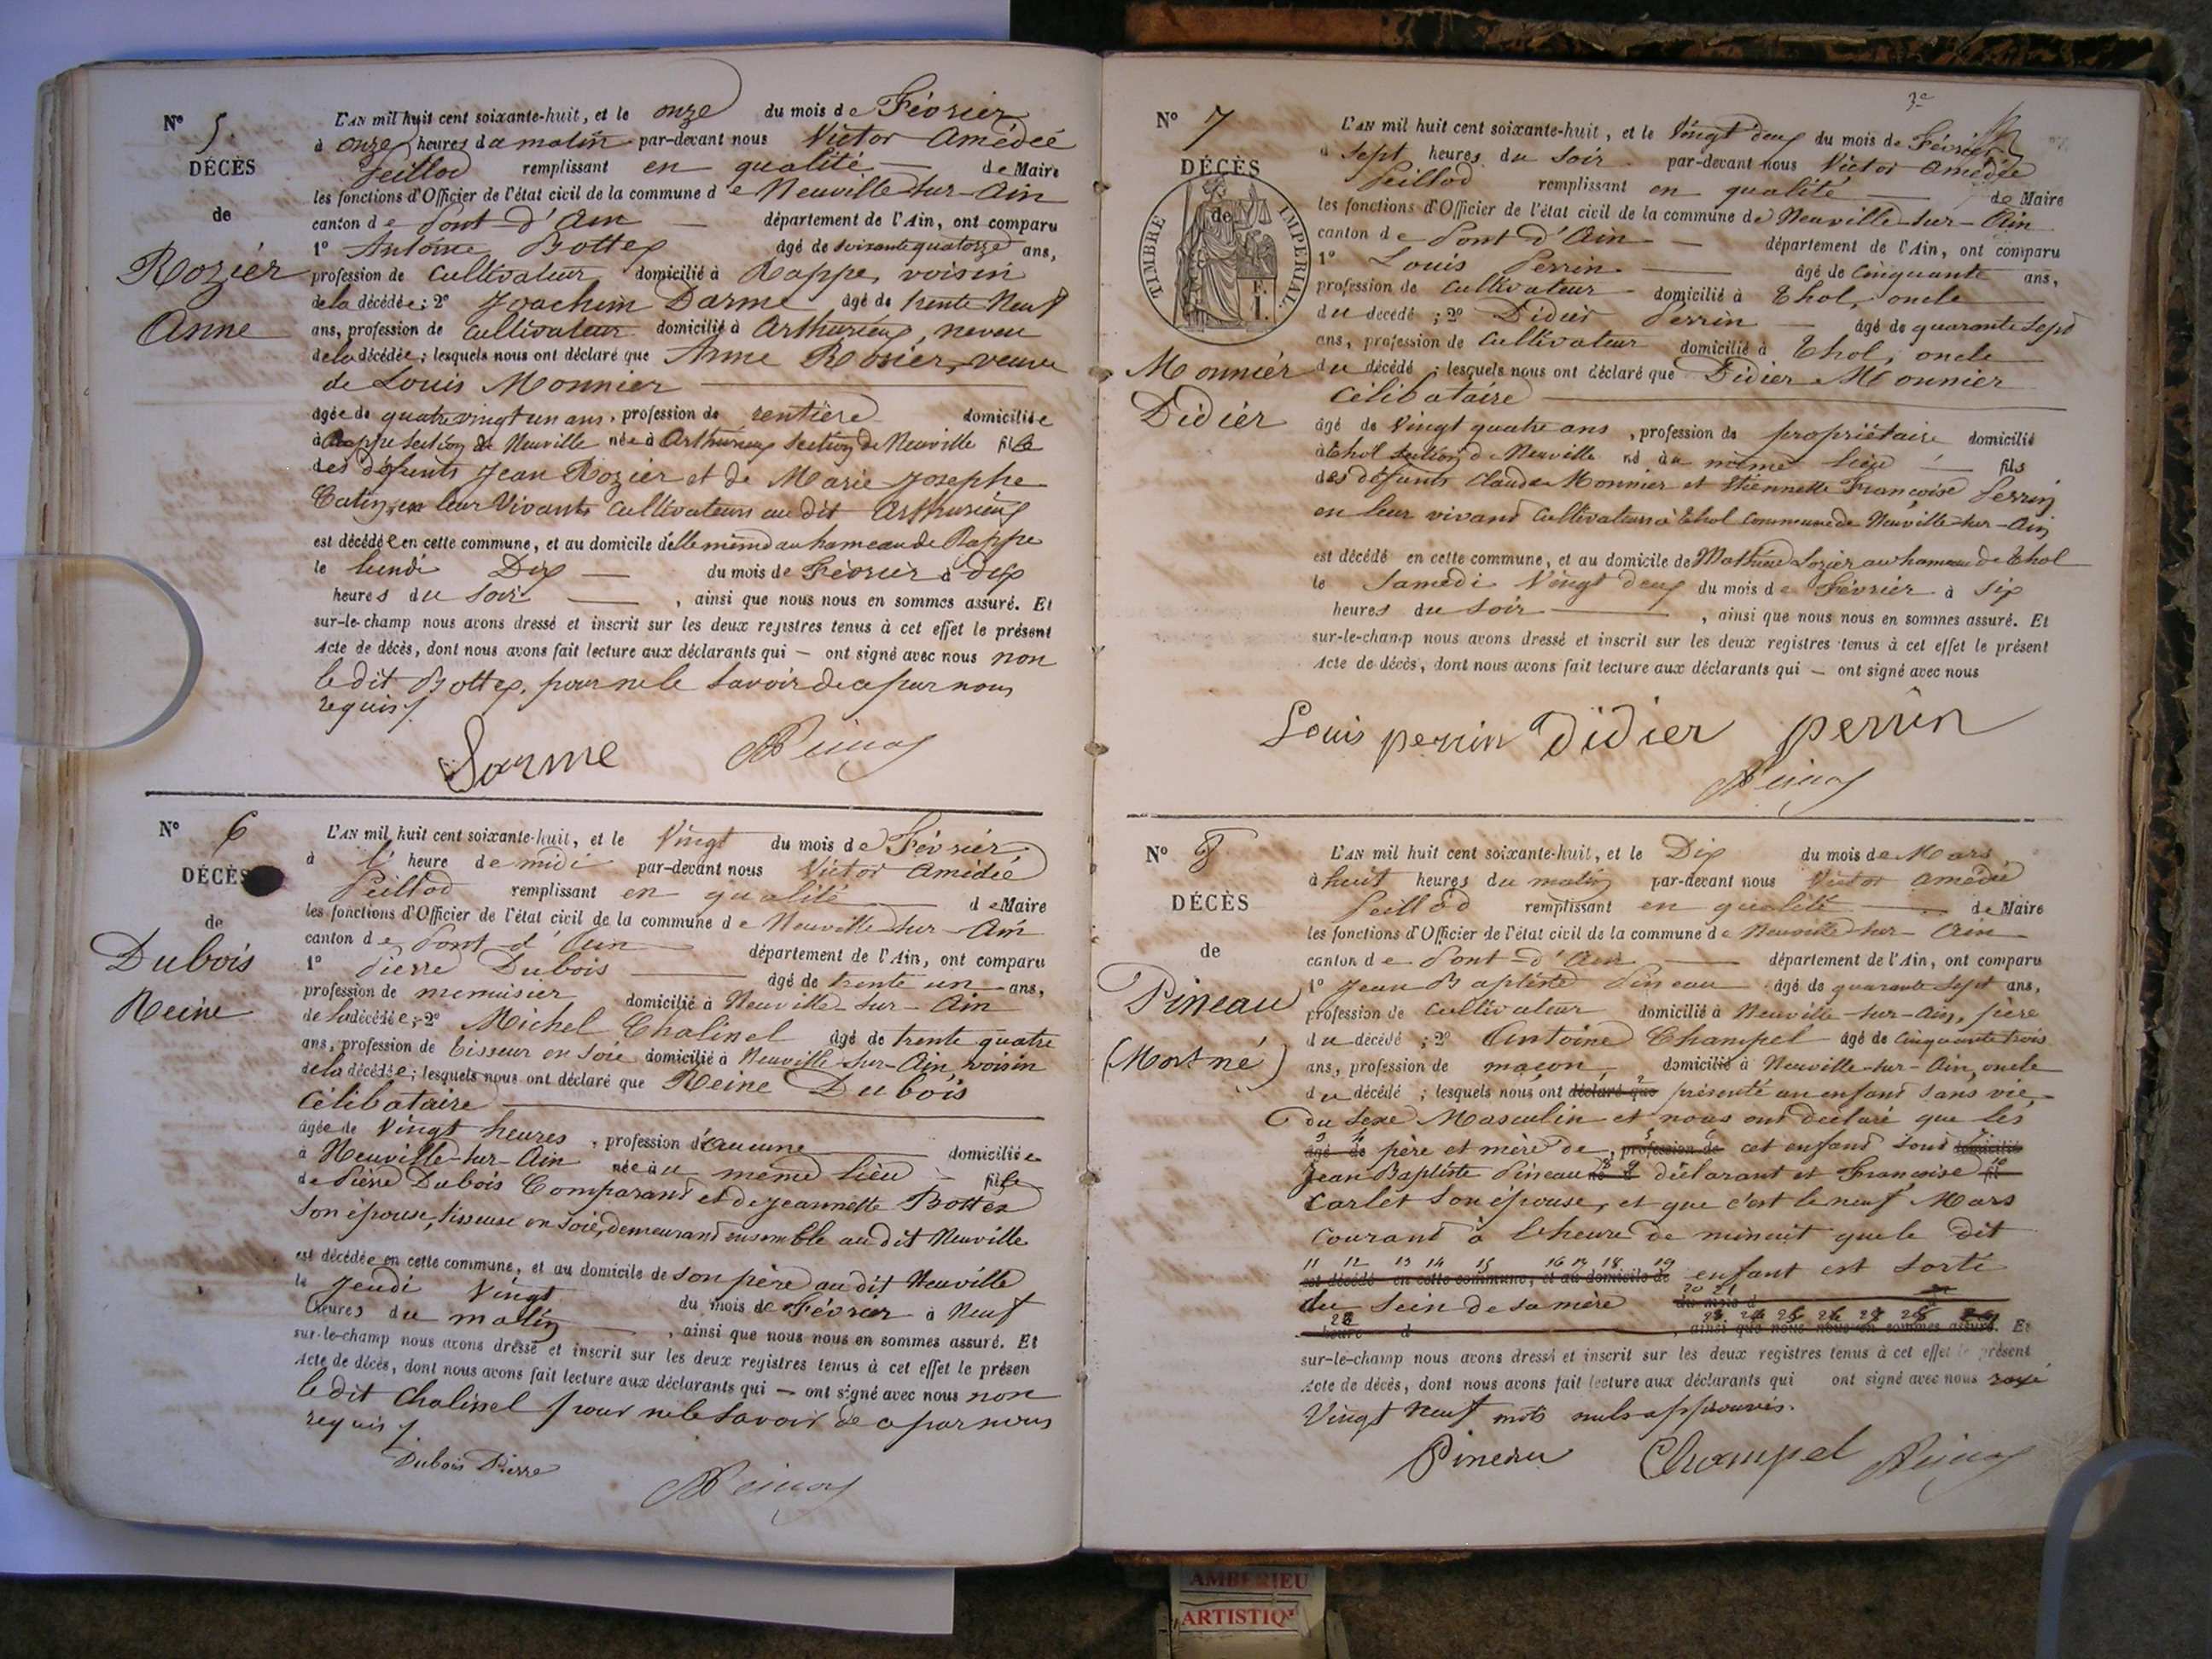 N° 5
DÉCÈS
de
Rozier
Anne
L'AN mil huit cent soixante-huit, et le onze du mois de Février
à onze heures du matin par-devant nous Victor Amédée
Peillod remplissant en qualité de Maire
les fonctions d'Officier de l'état civil de la commune de Neuville-sur-Ain
canton de Pont-d'Ain département de l'Ain, ont comparu
1° Antoine Bottex âgé de soixante quatorze ans,
profession de cultivateur domicilié à Rappe, voisin
de la décédée ; 2° Joachim Darme âgé de trente neuf
ans, profession de cultivateur domicilié à Arthurieux, neveu
de la décédée ; lesquels nous ont déclaré que Anne Rosier, veuve
de Louis Monnier
âgée de quatre vingt un ans, profession de rentière domiciliée
à Rappe section de Neuville née à Arthurieux section de Neuville fille
des défunts Jean Rozier et de Marie Josephe
en leur Vivants cultivateurs au dit Arthurieux
est décédée en cette commune, et au domicile d'elle même au hameau de Rappe
le lundi Dix du mois de Février à dix
heures du soir, ainsi que nous nous en sommes assuré. Et
sur-le-champ nous avons dressé et inscrit sur les deux registres tenus à cet effet le présent
Acte de décès, dont nous avons fait lecture aux déclarants qui — ont signé avec nous non
le dit Bottex, pour ne le savoir de ce par nous
requis
Darme
N° 6
DÉCÈS
de
Dubois
Reine
L'AN mil huit cent soixante-huit, et le Vingt du mois de Février
à l' heure de midi par-devant nous Victor Amédée
Peillod remplissant en qualité de Maire
les fonctions d'Officier de l'état civil de la commune de Neuville-sur-Ain
canton de Pont-d'Ain département de l'Ain, ont comparu
1° Pierre Dubois âgé de trente un ans,
profession de menuisier domicilié à Neuville-sur-Ain
de la décédée ; 2° Michel Chalinel âgé de trente quatre
ans, profession de tisseur en soie domicilié à Neuville-sur-Ain, voisin
de la décédée ; lesquels nous ont déclaré que Reine Dubois
célibataire
âgée de Vingt heures, profession d'aucune domiciliée
à Neuville-sur-Ain née au même lieu fille
de Pierre Dubois Comparant et de Jeannette Bottex
son épouse, tisseuse en soie, demeurant ensemble au dit Neuville
est décédée en cette commune, et au domicile de son père au dit Neuville
le Jeudi Vingt du mois de Février à Neuf
heures du matin, ainsi que nous nous en sommes assuré. Et
sur-le-champ nous avons dressé et inscrit sur les deux registres tenus à cet effet le présen
Acte de décès, dont nous avons fait lecture aux déclarants qui — ont signé avec nous non
le dit Chalinel pour ne le savoir de ce par nous
requis
Dubois Pierre
3e
N° 7
DÉCÈS
de
TIMBRE IMPERIAL
F.
1.
Monnier
Didier
L'AN mil huit cent soixante-huit, et le Vingt deux du mois de Février
à sept heures du soir par-devant nous Victor Amédée
Peillod remplissant en qualité de Maire
les fonctions d'Officier de l'état civil de la commune de Neuville-sur-Ain
canton de Pont-d'Ain département de l'Ain, ont comparu
1° Louis Perrin âgé de cinquante ans,
profession de cultivateur domicilié à Thol, oncle
du décédé ; 2° Didier Perrin âgé de quarante sept
ans, profession de cultivateur domicilié à Thol, oncle
du décédé ; lesquels nous ont déclaré que Didier Monnier
Célibataire
âgé de Vingt quatre ans, profession de propriétaire domicilié
à Thol section de Neuville né au même lieu fils
des défunts Claude Monnier et Etiennette Françoise Perrin
en leur vivant cultivateurs à Thol commune de Neuville-sur-Ain
est décédé en cette commune, et au domicile de Mathieu au hameau de Thol
le Samedi Vingt deux du mois de Février à six
heures du soir, ainsi que nous nous en sommes assuré. Et
sur-le-champ nous avons dressé et inscrit sur les deux registres tenus à cet effet le présent
Acte de décès, dont nous avons fait lecture aux déclarants qui — ont signé avec nous
Louis perrin Didier perrin
N° 8
DÉCÈS
de
Pineau
(Mort né)
L'AN mil huit cent soixante-huit, et le Dix du mois de Mars
à huit heures du matin par-devant nous Victor Amédée
Peillod remplissant en qualité de Maire
les fonctions d'Officier de l'état civil de la commune de Neuville-sur-Ain
canton de Pont-d'Ain département de l'Ain, ont comparu
1° Jean Baptiste Pineau âgé de quarante sept ans,
profession de cultivateur domicilié à Neuville-sur-Ain, père
du décédé ; 2° Antoine Champel âgé de cinquante trois
ans, profession de maçon, domicilié à Neuville-sur-Ain, oncle
du décédé ; lesquels nous ont déclaré que présenté un enfant sans vie
du sexe Masculin et nous ont déclaré que les
âgé de père et mère de, profession de cet enfant sont domicilié
Jean Baptiste Pineau né à déclarant et Françoise fil
Carlet son épouse, et que c'est le neuf Mars
courant à l'heure de minuit que le dit
11 12 13 14 15 16 17 18 19
est décédé en cette commune, et au domicile de enfant est sorti
du sein de sa mère du mois d
heure d, ainsi que nous nous en sommes assuré. Et
sur-le-champ nous avons dressé et inscrit sur les deux registres tenus à cet effet le présent
Acte de décès, dont nous avons fait lecture aux déclarants qui ont signé avec nous rayé
Vingt neuf mots nuls approuvés.
Pineau Champel
AMBERIEU
ARTISTIQ